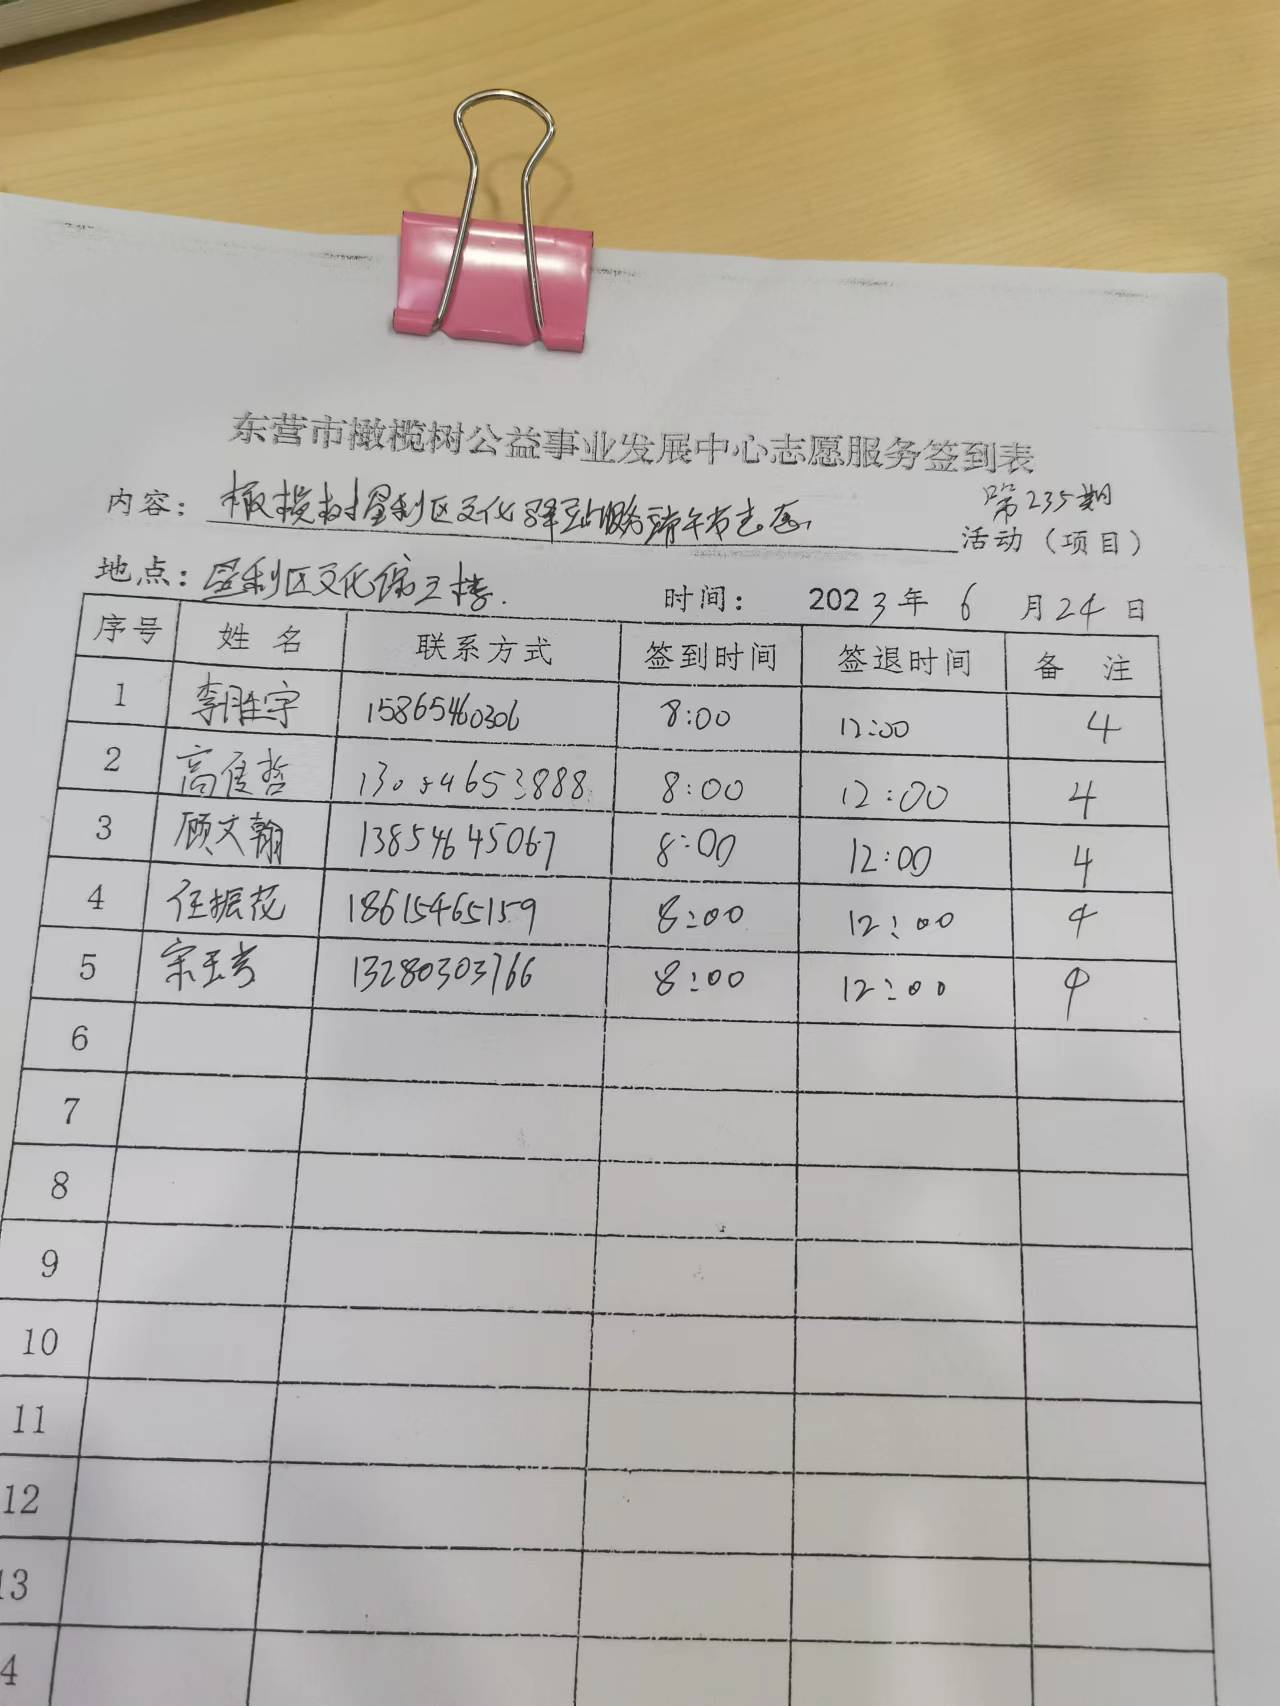 东营市橄榄树公益事业发展中心志愿服务签到表
第235期
内容：橄榄树垦利区文化驿站服务端午节志愿 活动（项目）
地点：垦利区文化馆三楼. 时间： 2023年 6 月24日
序号 姓 名 联系方式 签到时间 签退时间 备 注
1 李胜宇 15865460306 8:00 12:00 4
2 高 哲 8:00 12:00 4
3 顾文翰 13854645067 8:00 12:00 4
4 任振花 18615465159 8:00 12:00 4
5 宋玉芳 13280303766 8:00 12:00 4
6
7
8
9
10
11
12
13
4